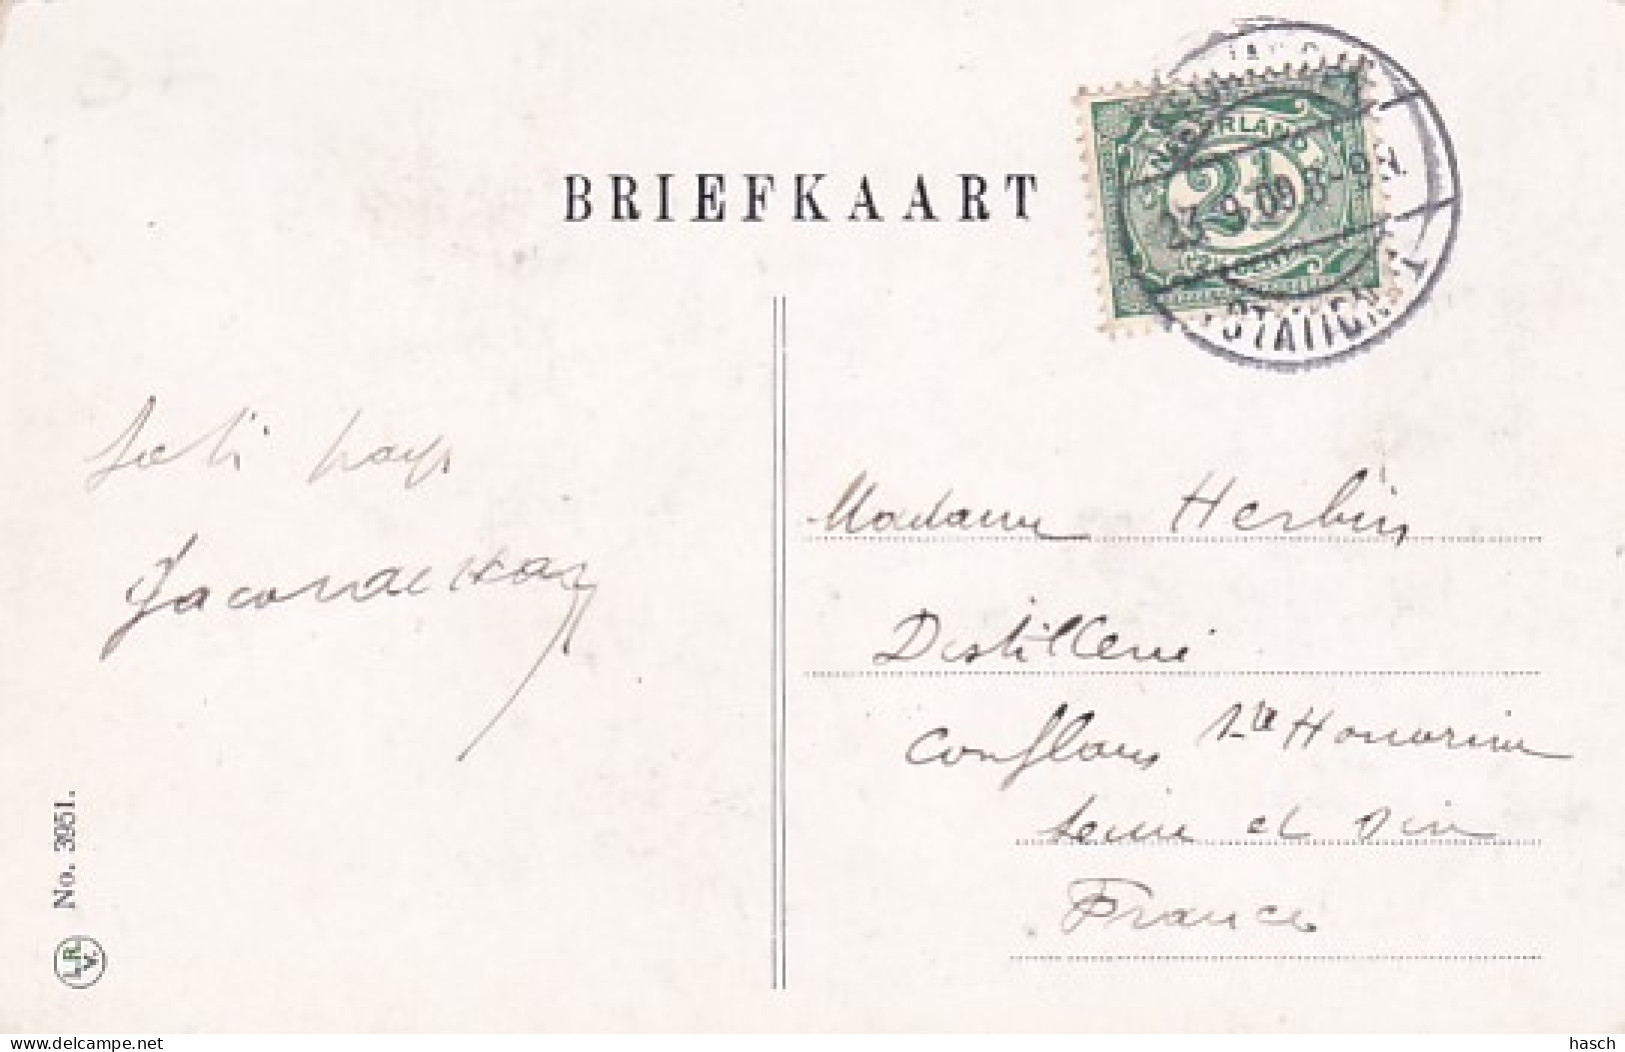 BRIEFKAART
NEDERLAND
2½
23.9.09.8-9N
STATION
Joli pays
Madame Herbin
Distillerie
Conflans Ste Honorine
Seine et Oise
France
No. 3951.
L.R.
V.
delcampe.net
hasch